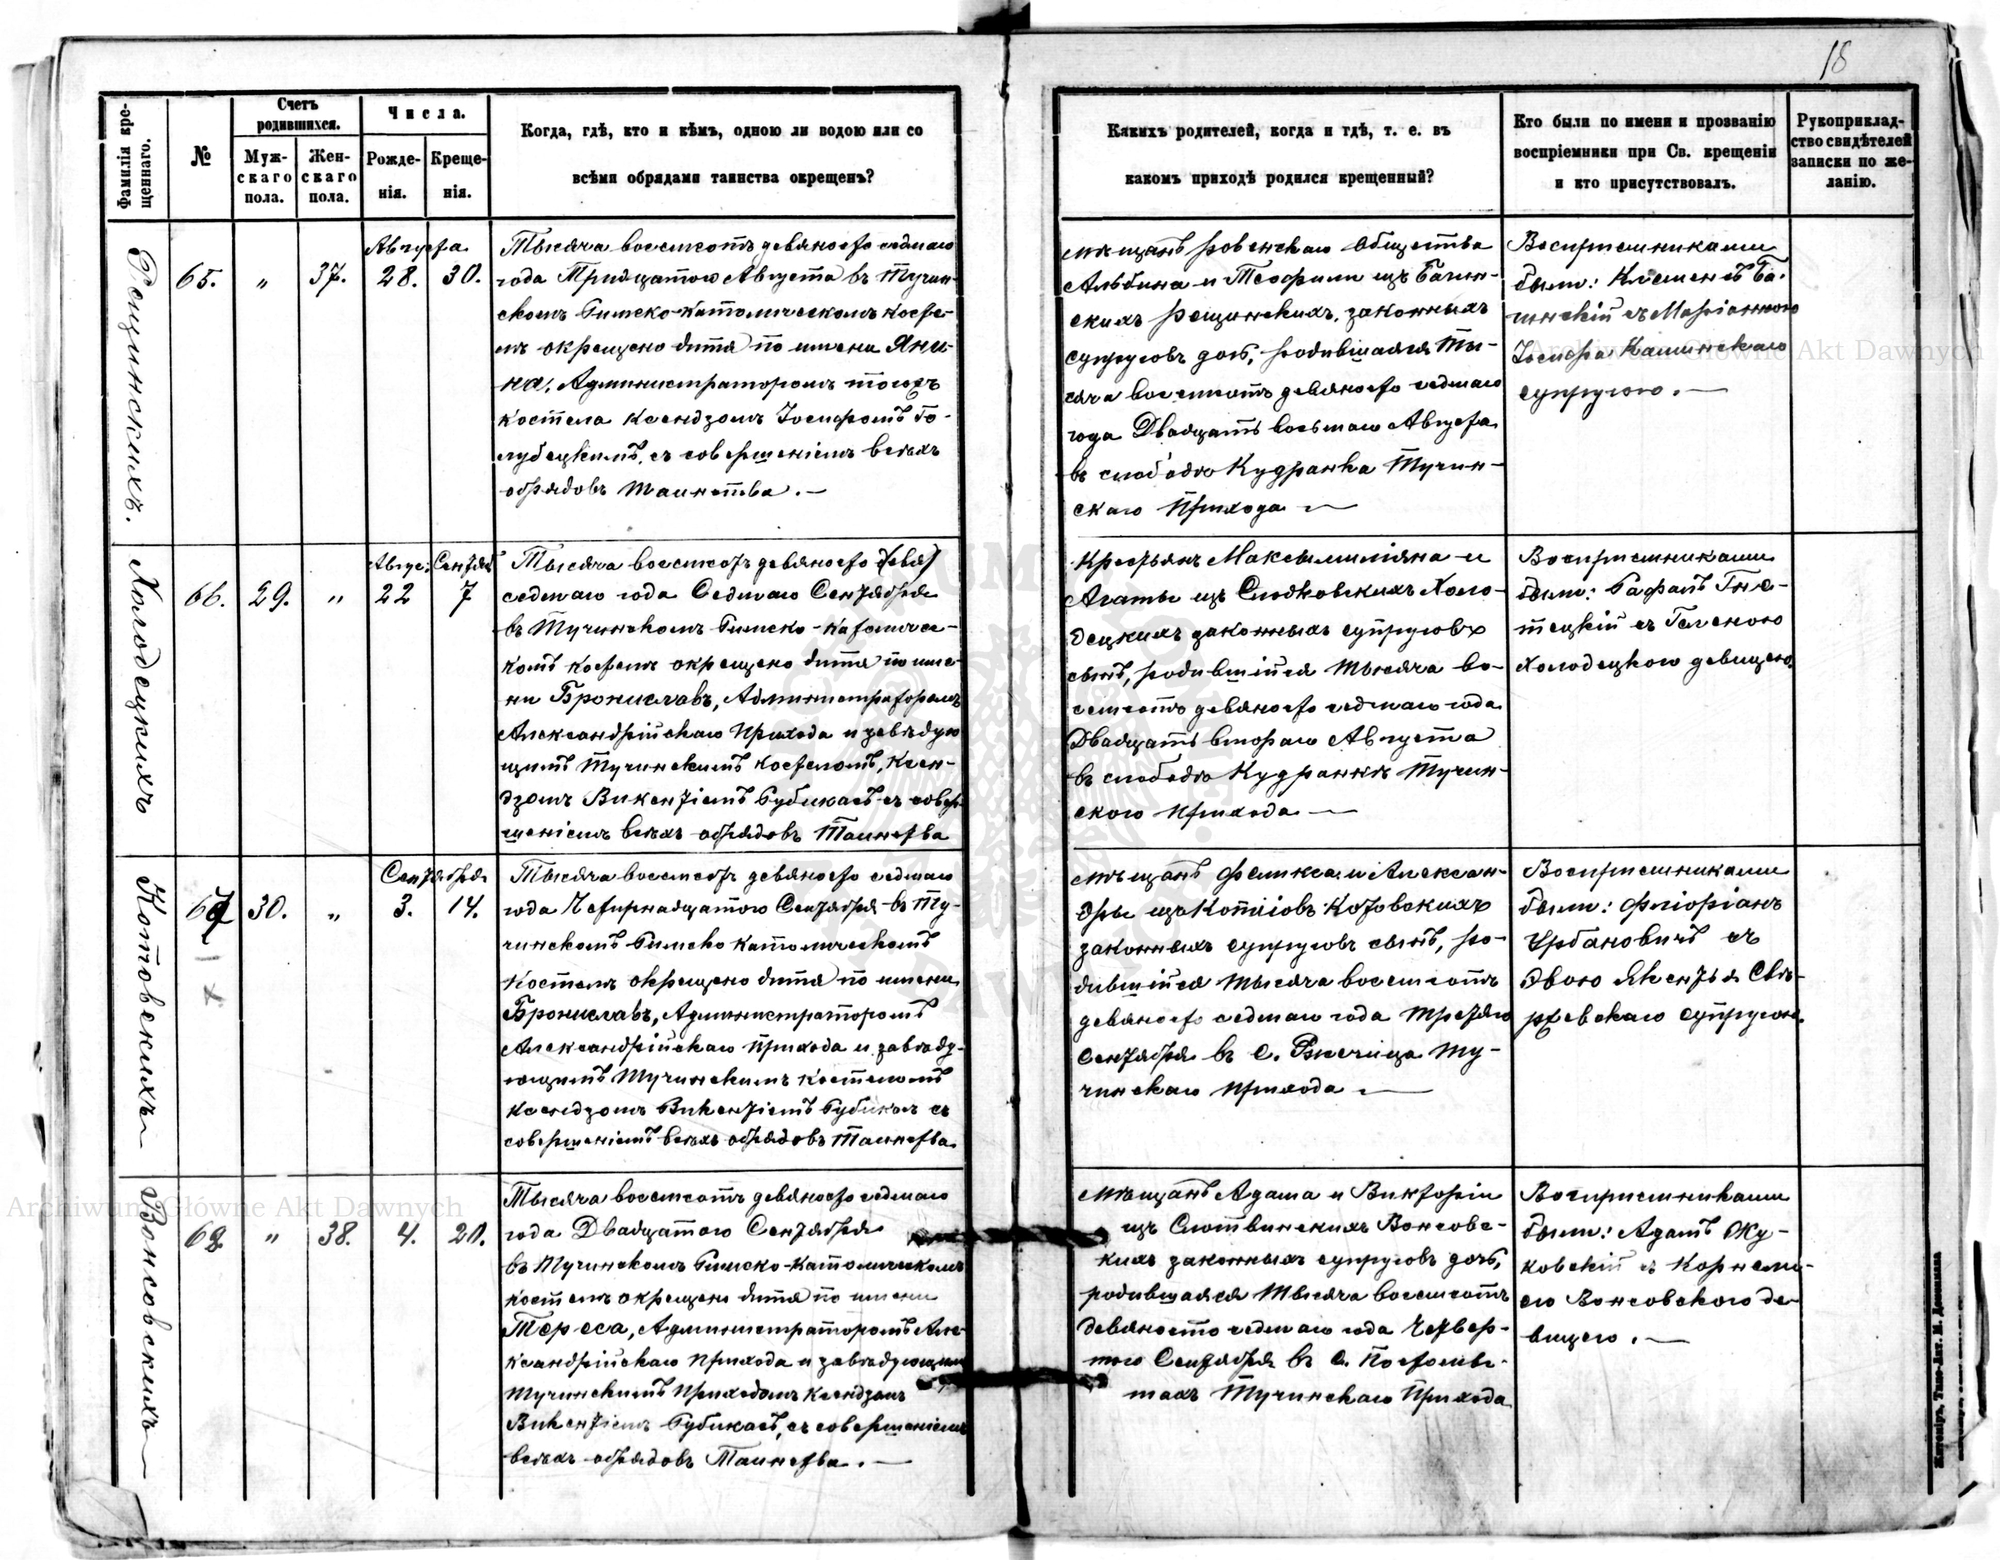 18
Фамилія кре-
щеннаго.
№
Счетъ
родившихся.
Муж-
скаго
пола.
Жен-
скаго
пола.
Числа.
Рожде-
нія.
Креще-
нія.
Когда, гдѣ, кто и кѣмъ, одною ли водою или со
всѣми обрядами таинства окрещенъ?
Какихъ родителей, когда и гдѣ, т. е. въ
какомъ приходѣ родился крещенный?
Кто были по имени и прозванію
воспріемники при Св. крещеніи
и кто присутствовалъ.
Рукоприклад-
ство свидѣтелей
записки по же-
ланію.
Рещинскихъ.
65.
"
37.
Августа
28.
30.
Тысяча восемсотъ девяносто седмаго
года Тридцатого Августа въ Тучин-
скомъ Римско-Католическомъ Косте-
лѣ окрещено дитя по имени Яни-
на, Администраторомъ тогожъ
костела Ксендзомъ Іосифомъ Го-
лубецкимъ, съ совершеніемъ всѣхъ
обрядовъ Таинства. —
Мѣщанъ Ровенскаго Общества
Альбина и Теофили изъ Багин-
скихъ Рещинскихъ, законныхъ
супруговъ дочь, родившаяся Ты-
сяча восемсотъ девяносто седмаго
года Двадцать восьмаго Августа
въ слободѣ Кудранка Тучин-
скаго Прихода —
Воспріемниками
были: Клеменъ Ба-
гинскій съ Маріанною
Іосифа Калинскаго
супругою. —
Холодецкихъ
66.
29.
"
Авгус: Сентяб
22
7
Тысяча восемсотъ девяносто (девя)
седмаго года Седмаго Сентября
въ Тучинскомъ Римско-Католичес-
комъ костелѣ окрещено дитя по име-
ни Брониславъ, Администраторомъ
Александрійскаго Прихода и завѣдую
щимъ Тучинскимъ костеломъ, Ксен-
дзомъ Викентіемъ Рубикасъ съ совер-
шеніемъ всѣхъ обрядовъ Таинства
Крестьянъ Максымиліяна и
Агаты изъ Слодковскихъ Холо-
децкихъ законныхъ супруговъ
сынъ, родившійся Тысяча во-
семсотъ девяносто седмаго года
Двадцать втораго Августа
въ слободѣ Кудранкѣ Тучин-
ского прихода —
Воспріемниками
были: Рафалъ Гнѣ-
тецкій съ Геленою
Холодецкого девицею.
Котовскихъ
67
30.
"
Сентября
3.
14.
Тысяча восемсотъ девяносто седмаго
года Четырнадцатого Сентября въ Ту-
чинскомъ Римско Католическомъ
Костелѣ окрещено дитя по имени
Брониславъ, Администраторомъ
Александрійскаго Прихода и завѣду-
ющимъ Тучинскимъ костеломъ
Ксендзомъ Викентіемъ Рубикас съ
совершеніемъ всѣхъ обрядовъ Таинства.
Мѣщанъ Феликса и Алексан-
дры изъ Копіювъ Котовскихъ
законныхъ супруговъ сынъ, ро-
дившійся Тысяча восемсотъ
девяносто седмаго года Третяго
Сентября въ с. Рѣсчица Ту-
чинскаго прихода —
Воспріемниками
были: Флоріанъ
Урбановичъ съ
Эвою
супругою.
Вонсовскихъ
68
"
38.
4.
20.
Тысяча восемсотъ девяносто седмаго
года Двадцатого Сентября
въ Тучинскомъ Римско-Католическомъ
костелѣ окрещено дитя по имени
Тереса, Администраторомъ Алек-
сандрійскаго Прихода и завѣдующимъ
Тучинскимъ Приходомъ Ксендзомъ
Викентіемъ Рубикасъ, съ совершеніемъ
всѣхъ обрядовъ Таинства. —
Мѣщанъ Адама и Викторіи
изъ Слотвинскихъ Вонсовс-
кихъ законныхъ супруговъ дочь,
родившаяся Тысяча восемсотъ
девяносто седмаго года Четвер-
того Сентября въ с.
Тучинскаго Прихода
Воспріемниками
были: Адамъ Жу-
ковскій съ Корнелі-
ею Вонсовского де-
вицею. —
Житомiръ, Типо-Лит. М. Дененмана
Archiwum Główne Akt Dawnych
Archiwum Główne Akt Dawnych